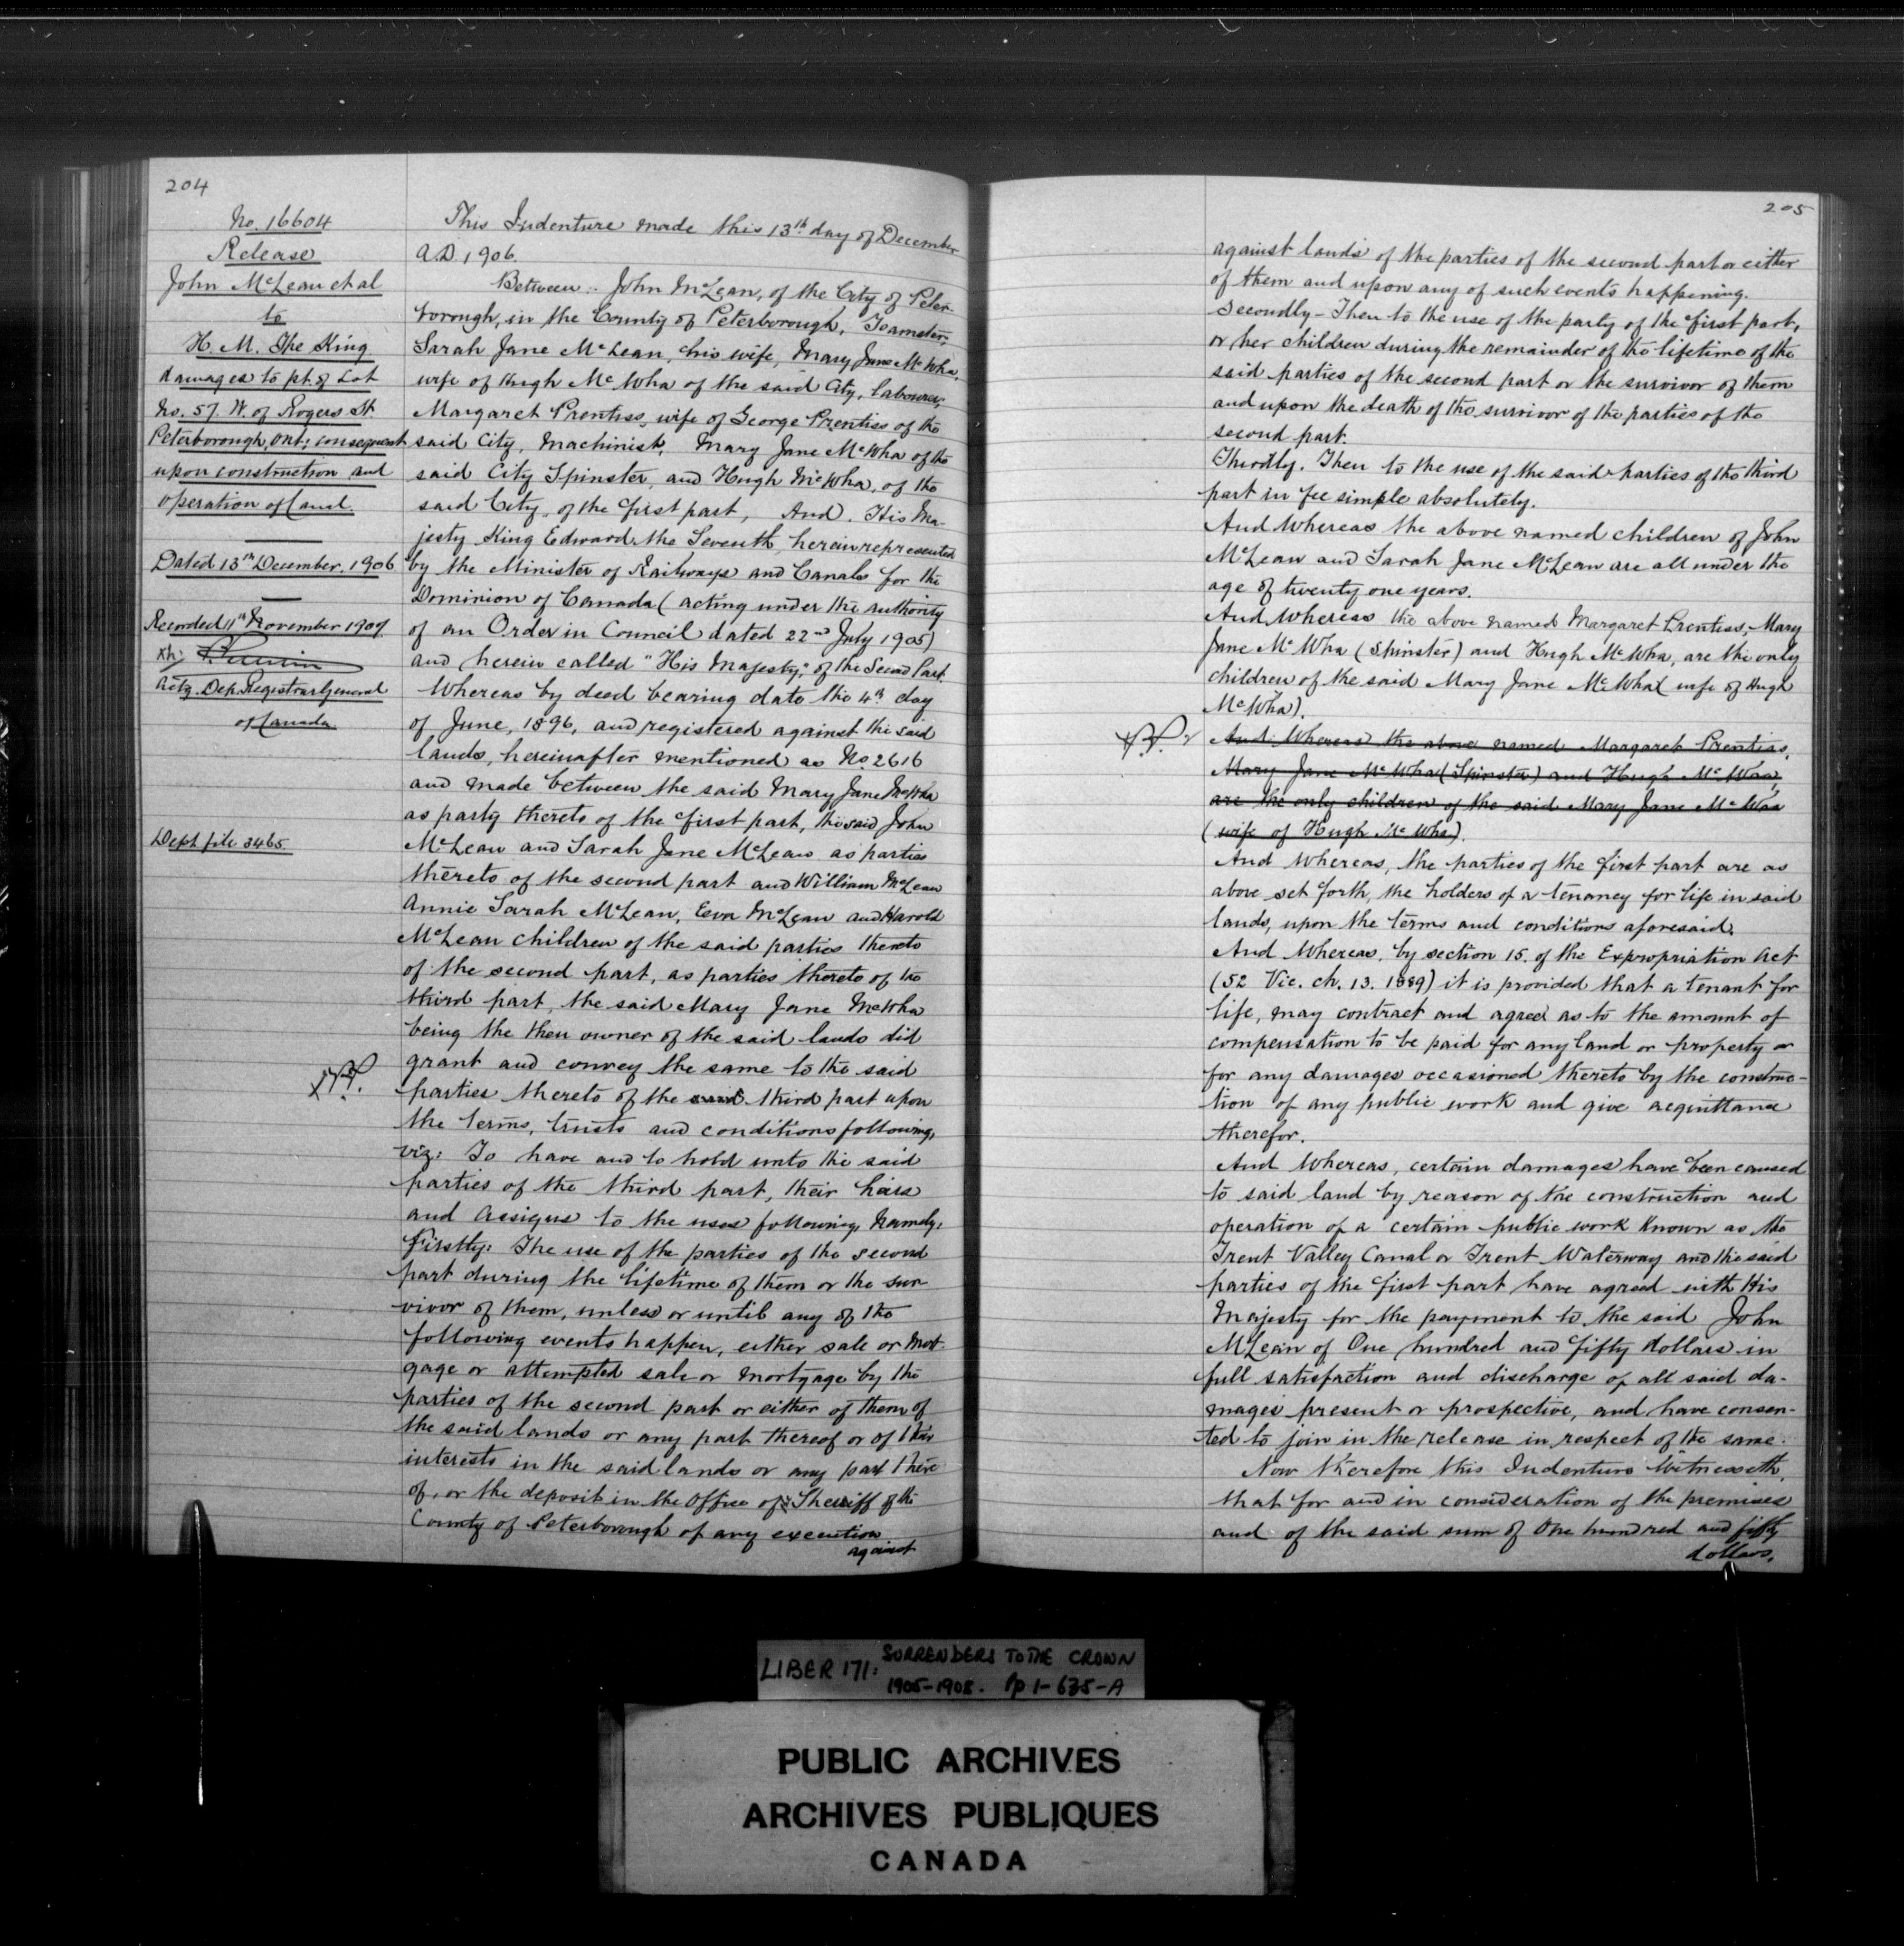 204
No. 16604
Release
John McLean et al
to
H. M. The King
damages to pt. of Lot
No. 57 W. of Rogers St.
Peterborough, Ont; consequent
upon construction and
operation of Canal.
Dated 13th December. 1906
Recorded 11th November 1907
Actg. Dep. Registrar General
of Canada
Dept. file 3465.
This Indenture made this 13th day of December
A.D. 1906.
Between:- John McLean, of the City of Peter-
borough, in the County of Peterborough, Teamster,
Sarah Jane McLean, his wife, Mary Jane McWha,
wife of Hugh McWha of the said City, labourer,
Margaret Prentiss, wife of George Prentiss of the
said City, Machinist, Mary Jane McWha of the
said City Spinster, and Hugh McWha, of the
said City, of the first part, And, His Ma-
jesty King Edward the Seventh, herein represented
by the Minister of Railways and Canals for the
Dominion of Canada (acting under the authority
of an Order in Council dated 22nd July 1905)
and herein called "His Majesty," of the Second Part.
Whereas by deed bearing date the 4th day
of June, 1896, and registered against the said
lands, hereinafter mentioned as No. 2616
and made between the said Mary Jane McWha
as party thereto of the first part, the said John
McLean and Sarah Jane McLean as parties
thereto of the second part and William McLean
Annie Sarah McLean, Eva McLean and Harold
McLean children of the said parties thereto
of the second part, as parties thereto of the
third part, the said Mary Jane McWha
being the then owner of the said lands did
grant and convey the same to the said
parties thereto of the said third part upon
the terms, trusts and conditions following,
viz: To have and to hold unto the said
parties of the third part, their heirs
and assigns to the uses following, namely,
Firstly: The use of the parties of the second
part during the lifetime of them or the sur
vivor of them, unless or until any of the
following events happen, either sale or mort-
gage or attempted sale or mortgage by the
parties of the second part or either of them of
the said lands or any part thereof or of their
interests in the said lands or any part there
of, or the deposit in the office of Sheriff of the
County of Peterborough of any execution
against
205
against lands of the parties of the second part or either
of them and upon any of such events happening.
Secondly- Then to the use of the party of the first part,
or her children during the remainder of the lifetime of the
said parties of the second part or the survivor of them
and upon the death of the survivor of the parties of the
second part.
Thirdly. Then to the use of the said parties of the third
part in fee simple absolutely.
And Whereas the above named children of John
McLean and Sarah Jane McLean are all under the
age of twenty one years.
And Whereas the above named Margaret Prentiss, Mary
Jane McWha (Spinster) and Hugh McWha, are the only
children of the said Mary Jane McWha (wife of Hugh
McWha).
And Whereas the above named Margaret Prentiss,
Mary Jane McWha (Spinster) and Hugh McWha,
are the only children of the said Mary Jane McWha
(wife of Hugh McWha).
And whereas, the parties of the first part are as
above set forth, the holders of a tenancy for life in said
lands, upon the terms and conditions aforesaid.
And Whereas, by section 15. of the Expropriation Act
(52 Vic. ch. 13. 1889) it is provided that a tenant for
life, may contract and agree as to the amount of
compensation to be paid for any land or property or
for any damages occasioned thereto by the construc-
tion of any public work and give acquittance
therefor.
And Whereas, certain damages have been caused
to said land by reason of the construction and
operation of a certain public work known as the
Trent Valley Canal or Trent Waterway and the said
parties of the first part have agreed with His
Majesty for the payment to the said John
McLean of One hundred and fifty dollars in
full satisfaction and discharge of all said da-
mages present or prospective, and have consen-
ted to join in the release in respect of the same.
Now therefore this Indenture Witnesseth,
that for and in consideration of the premises
and of the said sum of One hundred and fifty
dollars.
LIBER 171: SURRENDERS TO THE CROWN
1905-1908. Pp 1-635-A
PUBLIC ARCHIVES
ARCHIVES PUBLIQUES
CANADA